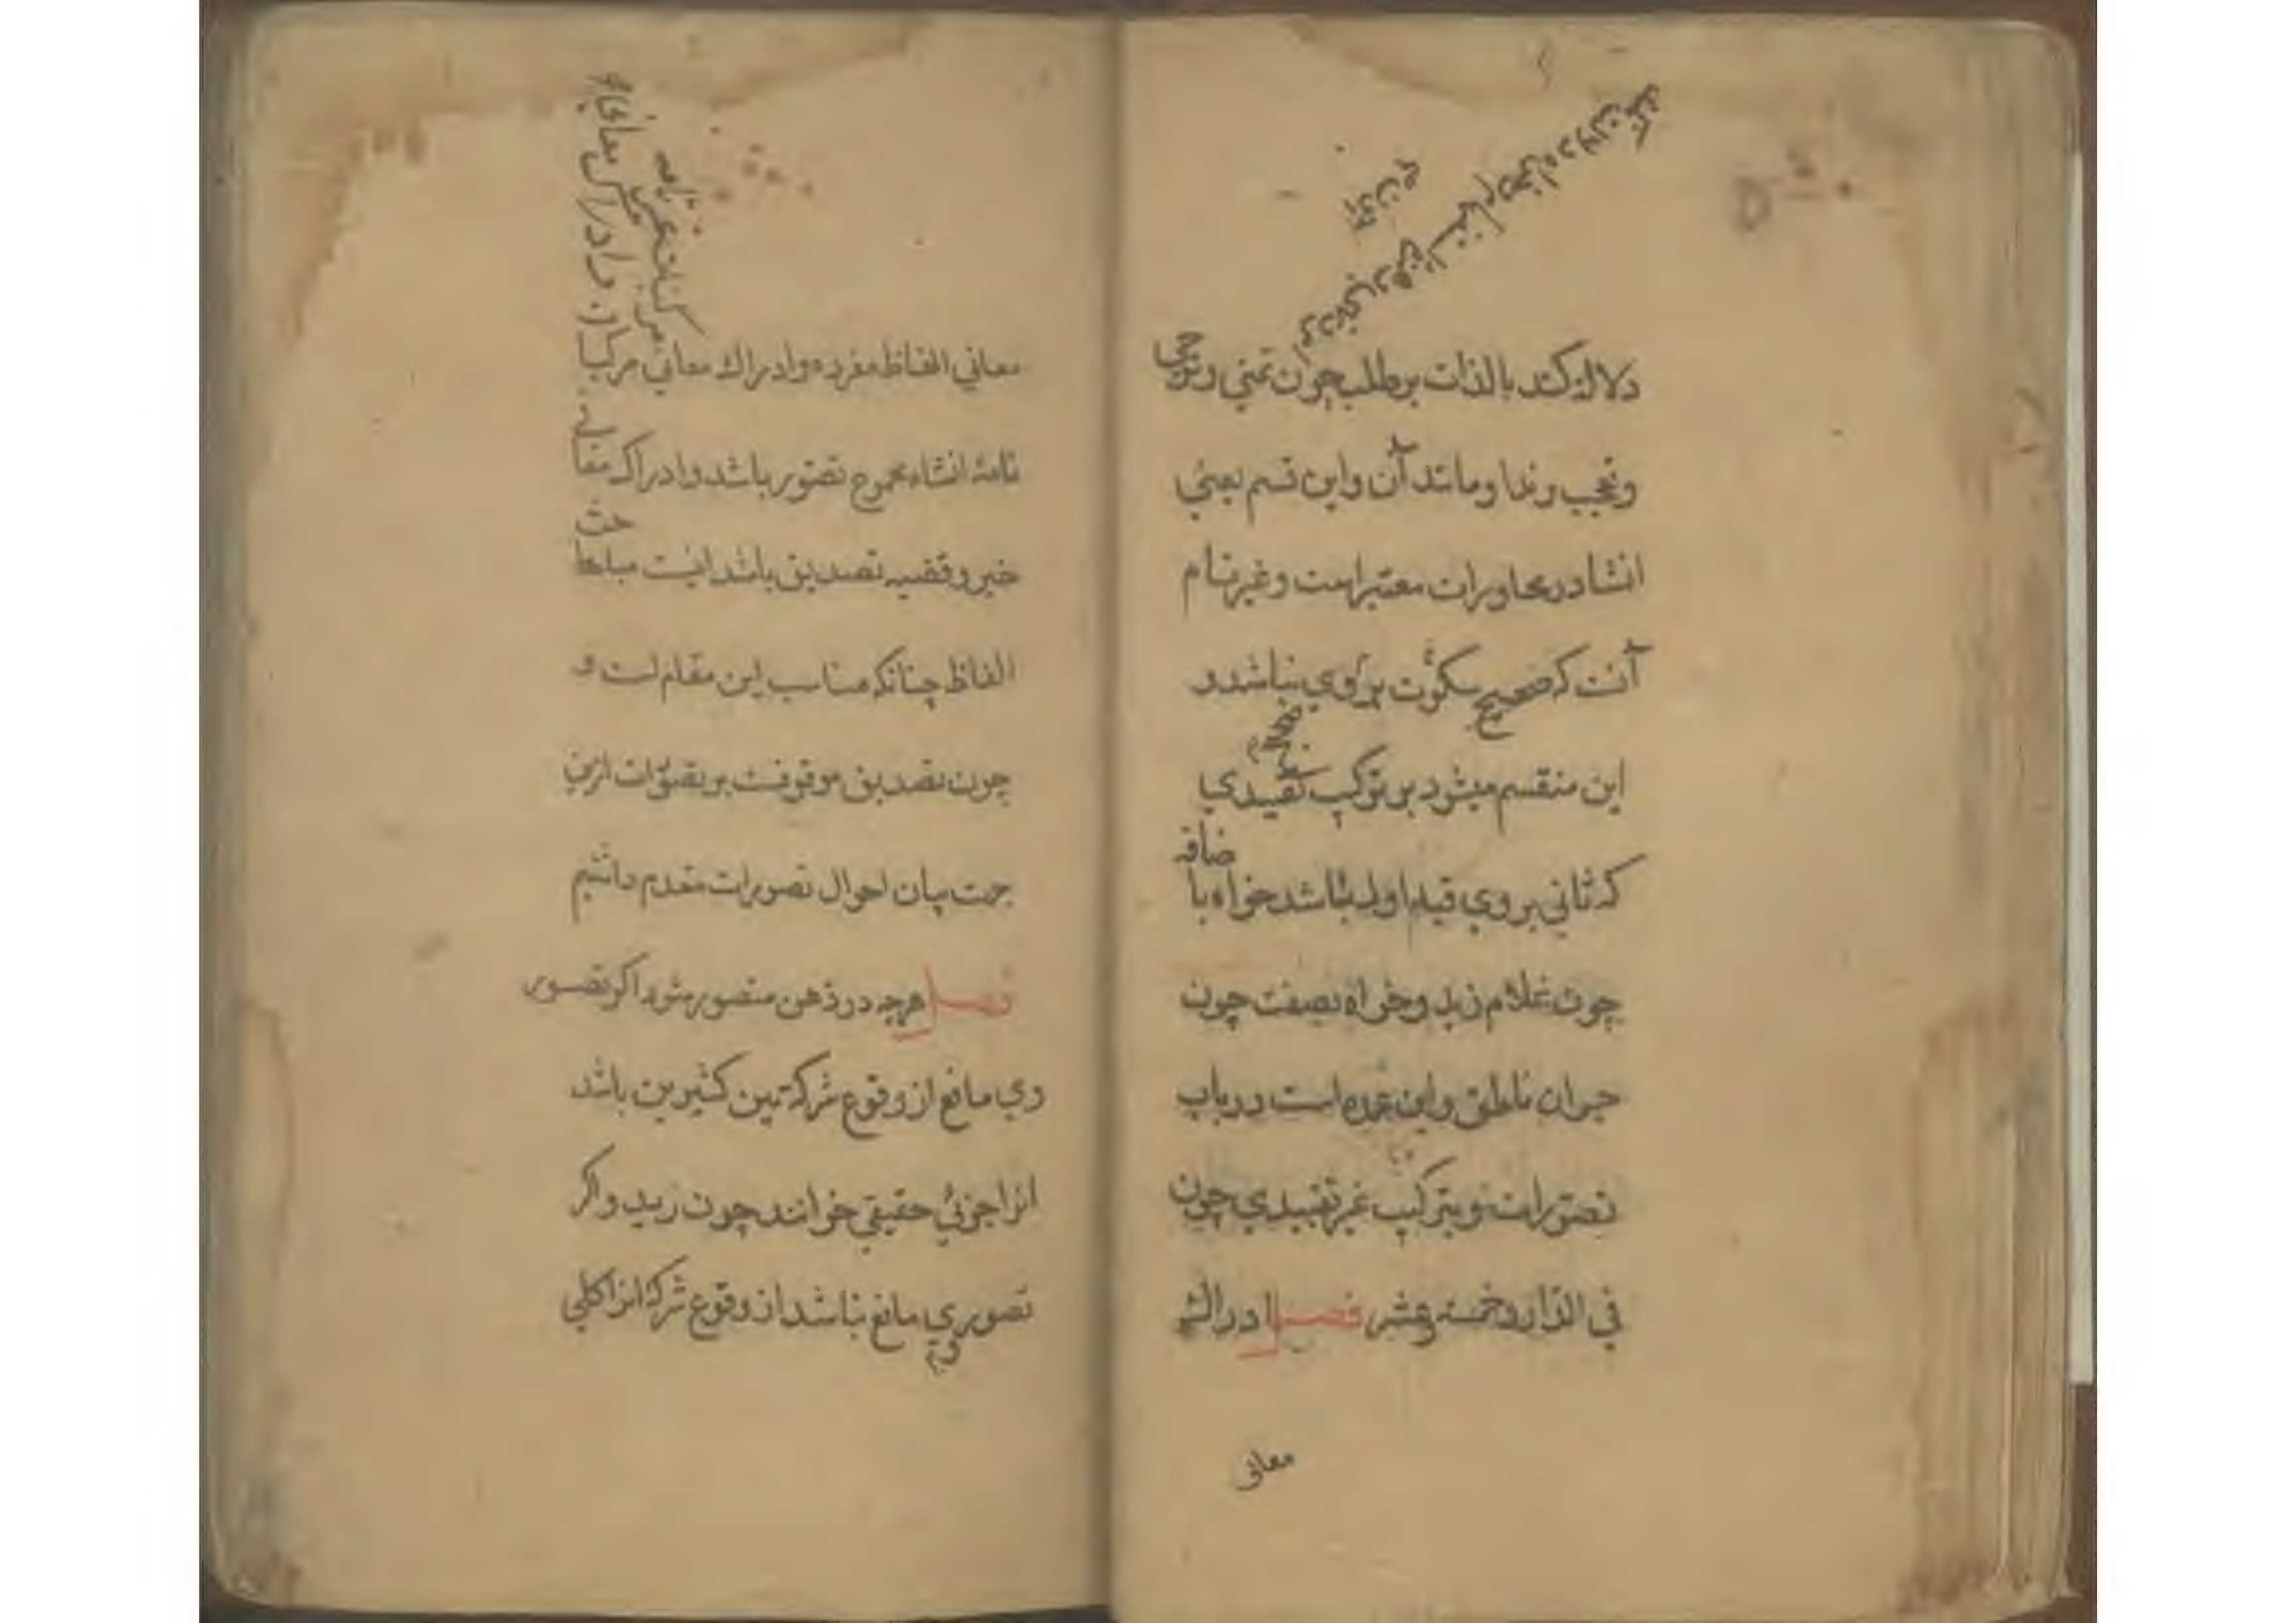 دلالة کند بالذات بر طلب چون تمنی و ترجی
و تعجب و ندا و مانند آن و این قسم یعنی
انشا در محاورات معتبر است و غیر تام
آنست که صحیح سکوت بر وی نباشد و
این منقسم میشود بر ترکیب تقییدی
که ثانی بر وی قید اول باشد خواه باضافة
چون غلام زید و خواه بصفت چون
حیوان ناطق و این عمده است در باب
تصورات و بترکیب غیر تقییدی چون
فی الدار و خمسة عشر فصل ادراک
معانی
معانی الفاظ مفرده و ادراک معانی مرکبات
تامه انشاء مجموع تصور باشد و ادراک معانی
خبر و قضیه تصدیق باشد اینست مباحث
الفاظ چنانکه مناسب این مقام است و
چون تصدیق موقوفست بر تصورات ازین
جهت بیان احوال تصورات مقدم داشتیم
فصل هرچه در ذهن متصور شود اکر تصور
وی مانع از وقوع شرکة بین کثیرین باشد
انرا جزئی حقیقی خوانند چون زید و اکر
تصور وی مانع نباشد از وقوع شرکة انرا کلی